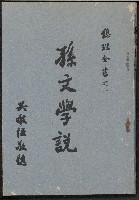 總理全書之一
孫文學說
吳敬恆敬題